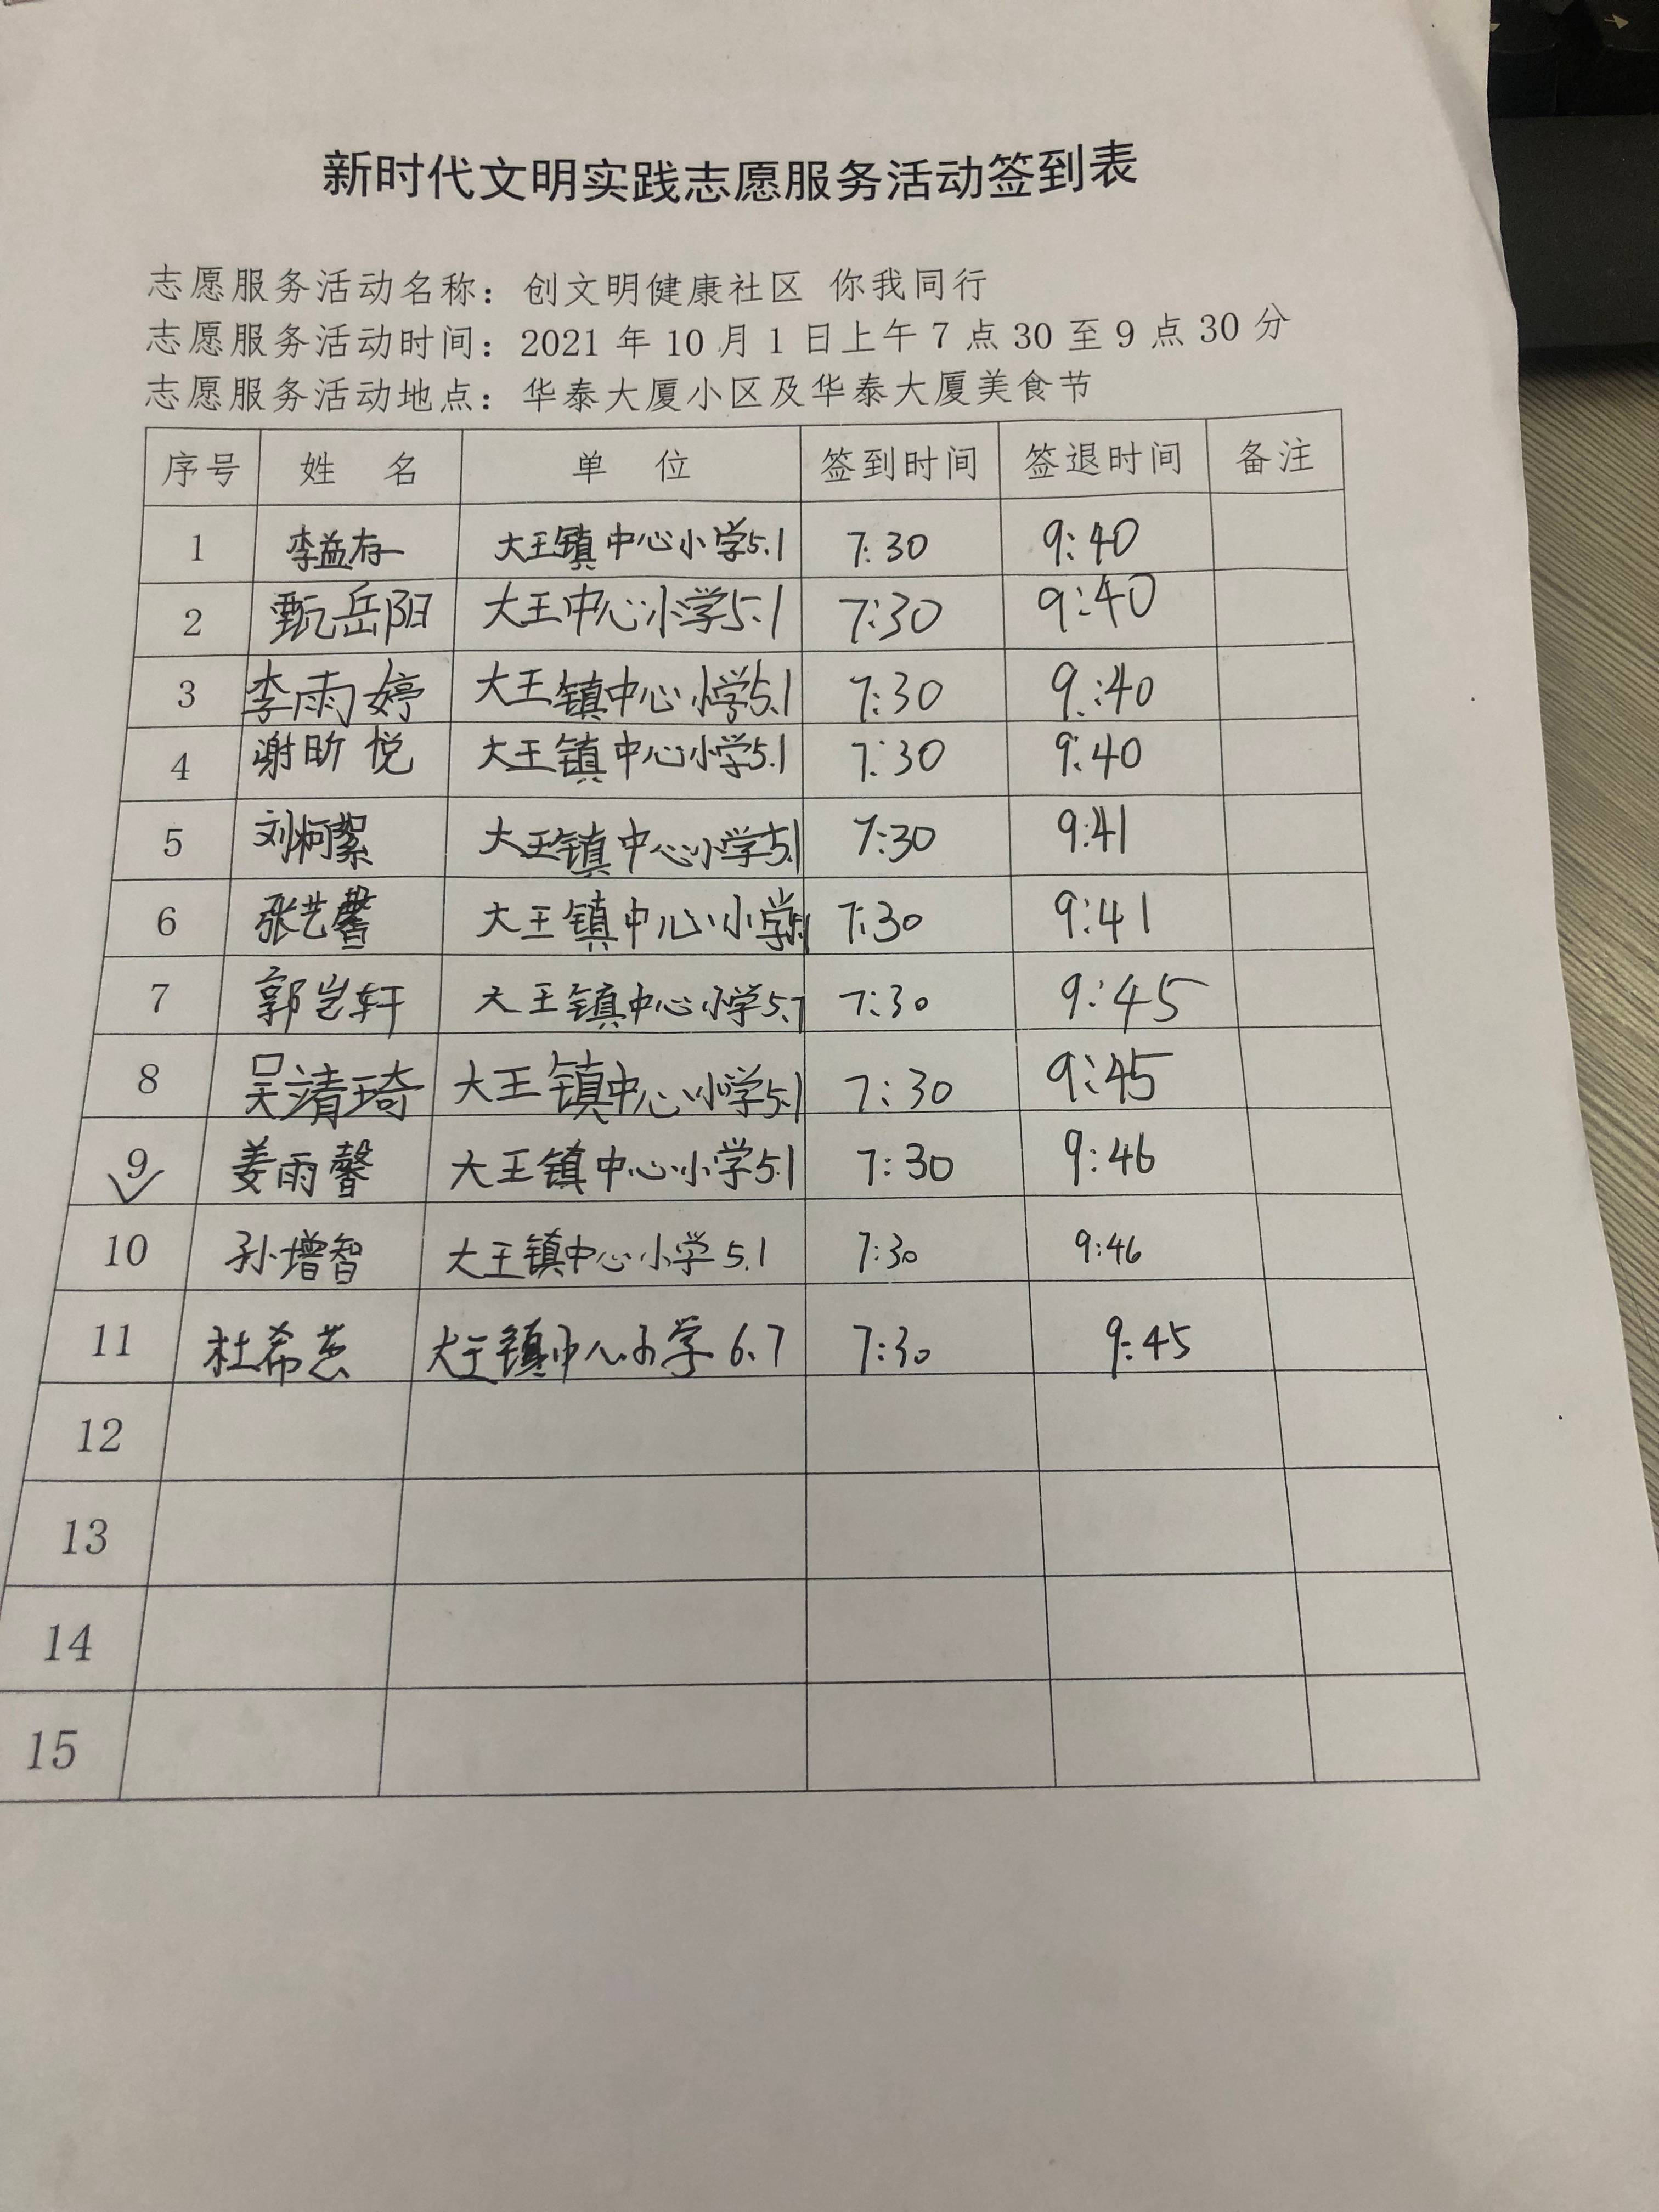 新时代文明实践志愿服务活动签到表
志愿服务活动名称：创文明健康社区 你我同行
志愿服务活动时间：2021年10月1日上午7点30至9点30分
志愿服务活动地点：华泰大厦小区及华泰大厦美食节
序号 姓 名 单 位 签到时间 签退时间 备注
1 李益存 大王镇中心小学5.1 7:30 9:40
2 甄岳阳 大王中心小学5.1 7:30 9:40
3 李雨婷 大王镇中心小学5.1 7:30 9:40
4 谢昕悦 大王镇中心小学5.1 7:30 9:40
5 刘柯絮 大王镇中心小学5.1 7:30 9:41
6 张艺馨 大王镇中心小学5.1 7:30 9:41
7 郭岂轩 大王镇中心小学5.1 7:30 9:45
8 吴清琦 大王镇中心小学5.1 7:30 9:45
9 姜雨馨 大王镇中心小学5.1 7:30 9:46
10 孙增智 大王镇中心小学5.1 7:30 9:46
11 杜希 大王镇中心小学6.7 7:30 9:45
12
13
14
15